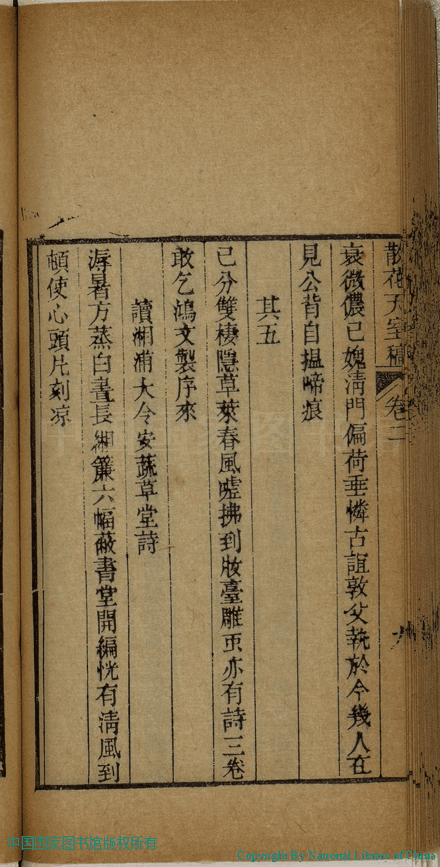 散花天室稿 卷二
衰微儂已媿淸門偏荷垂憐古誼敦父執於今幾人在
見公背自搵啼痕
其五
已分雙棲隱草萊春風噓拂到妝臺雕虫亦有詩三卷
敢乞鴻文製序來
讀湘浦大令安蔬草堂詩
溽暑方蒸白晝長湘簾六幅蔽書堂開編恍有淸風到
頓使心頭片刻凉
中国国家图书馆版权所有
Copyright By National Library of China